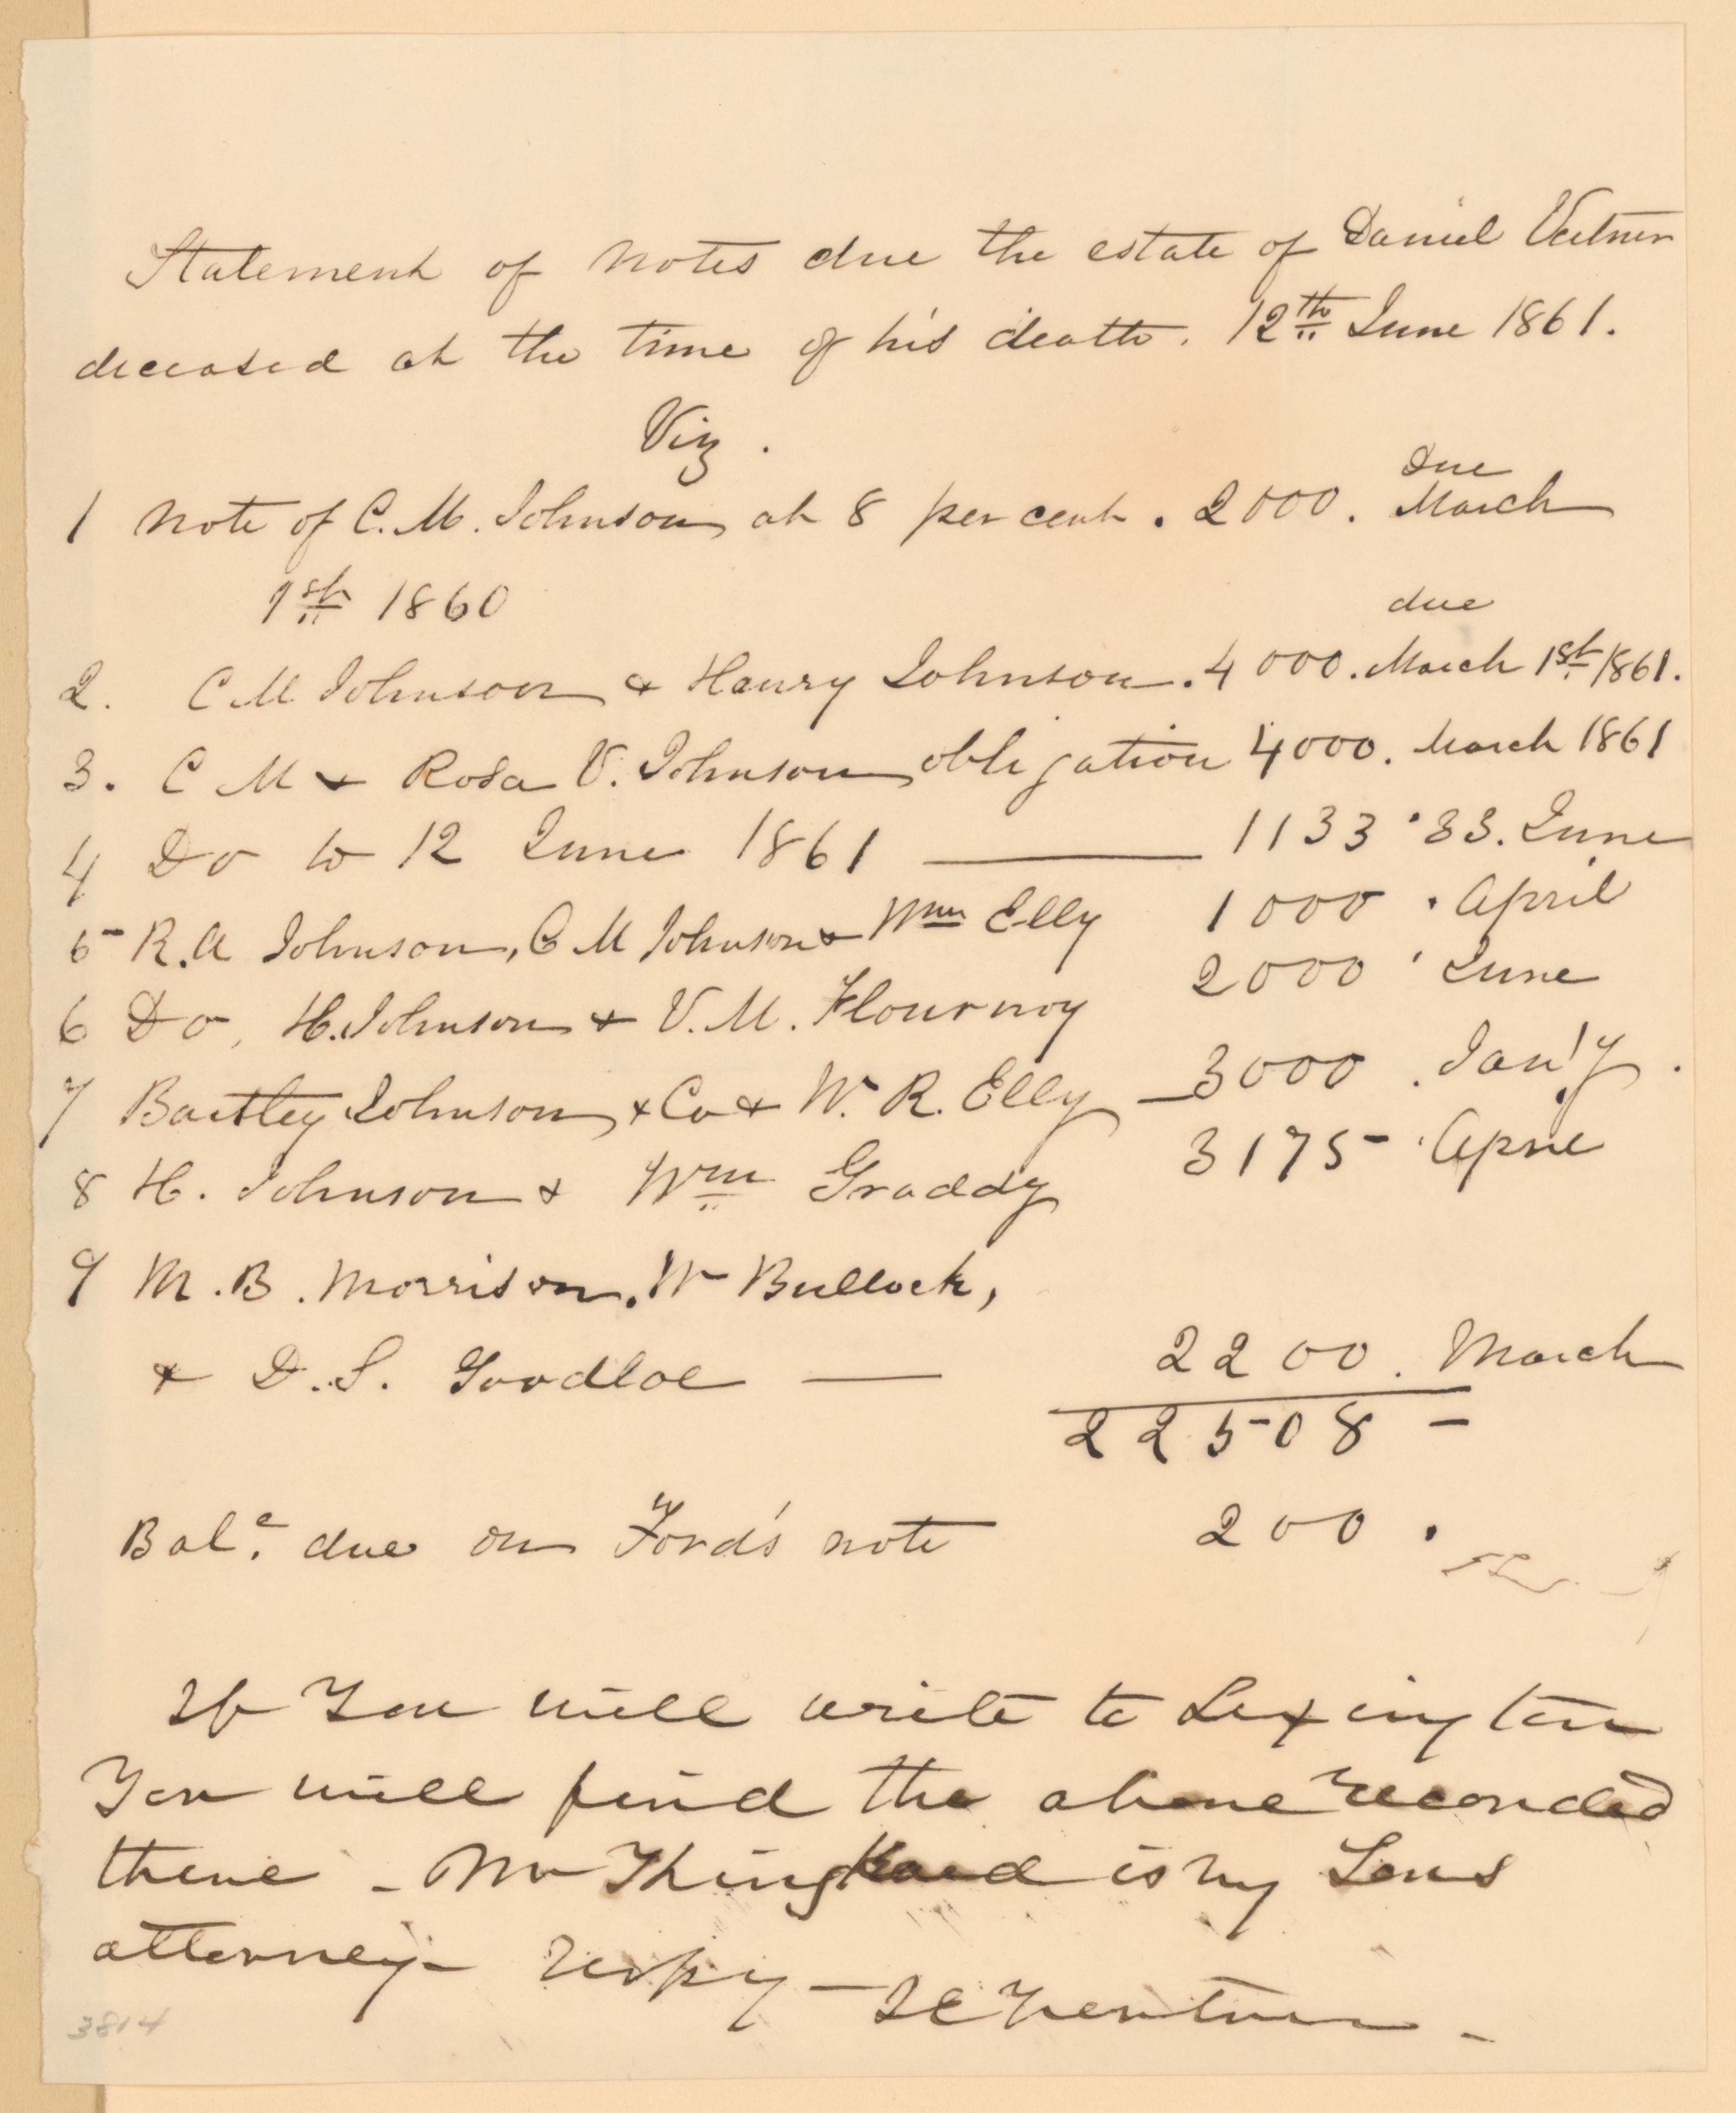 Statement of notes due the estate of Daniel Vertner
deceased at the time of his death. 12th June 1861.
Viz.
Due
1 note of C. M. Johnson at 8 per cent. 2000. March
1st 1860
due
2. C M Johnson & Henry Johnson. 4000. March 1st 1861.
3. C M & Rosa V. Johnson obligation 4000. March 1861
4 Do to 12 June 1861 — 1133.33. June
5 R. A Johnson, C M Johnson & Wm Elly 1000. April
6 Do, H. Johnson & V. M. Flournoy 2000 June
7 Bartley Johnson & Co & W. R. Elly — 3000. Jan'y.
8 H. Johnson & Wm Graddy 3175 - April
9 M. B. Morrison, W Bullock,
& D. S. Goodloe — 2200. March
22508 -
Bale. due on Ford's note 200.
If You will write to Lexington
You will find the above recorded
there - Mr is my Sons
attorney - respy -
3814